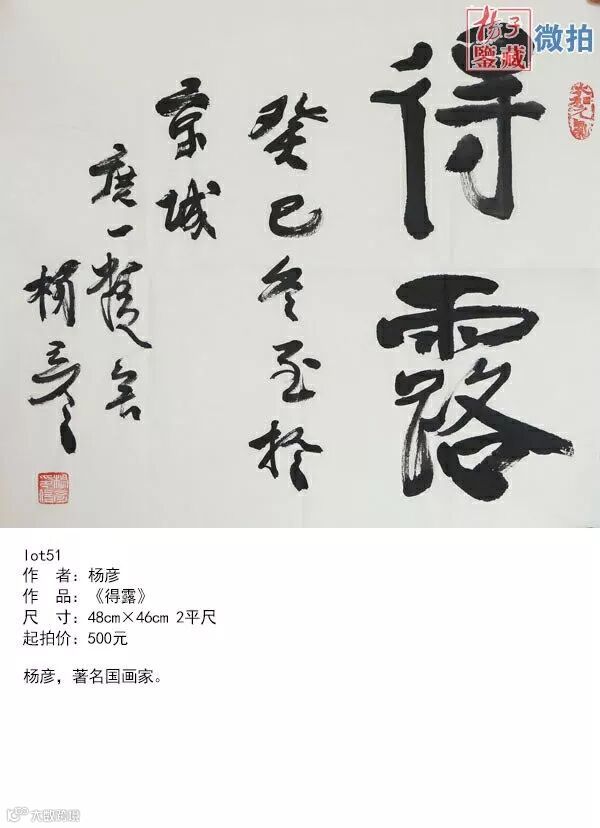 子
鑒藏
微拍
得露
癸巳冬至於
京城
杨彦
lot51
作 者：杨彦
作 品：《得露》
尺 寸：48cm×46cm 2平尺
起拍价：500元
杨彦，著名国画家。
大数跨境